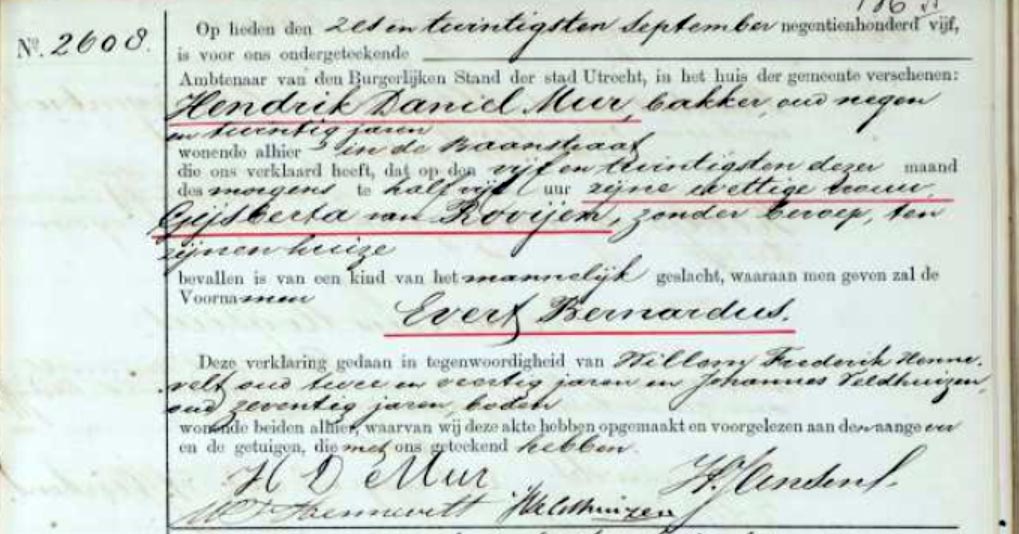 Nº. 2608.
Op heden den zes en twintigsten September negentienhonderd vijf,
is voor ons ondergeteekende
Ambtenaar van den Burgerlijken Stand der stad Utrecht, in het huis der gemeente verschenen:
Hendrik Daniel Mur, bakker, oud negen
en twintig jaren
wonende alhier in de Baanstraat
die ons verklaard heeft, dat op den vijf en twintigsten dezer maand
des morgens te half vijf uur zijne wettige vrouw
Gijsberta van Rooijen, zonder beroep, ten
zijnen huize
bevallen is van een kind van het mannelijk geslacht, waaraan men geven zal de
Voornamen
Evert Bernardus.
Deze verklaring gedaan in tegenwoordigheid van Willem Frederik Henne-
velt oud twee en veertig jaren en Johannes Veldhuizen,
oud zeventig jaren, boden
wonende beiden alhier, waarvan wij deze akte hebben opgemaakt en voorgelezen aan den aangever
en de getuigen, die met ons geteekend hebben.
H D Mur